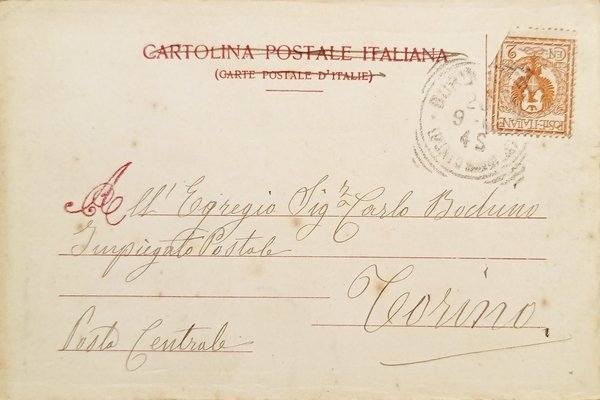 CARTOLINA POSTALE ITALIANA
(CARTE POSTALE D'ITALIE)
POSTE ITALIANE
CENT 2
9
4 S
All' Egregio Sigr Carlo Boduno
Impiegato Postale
Torino
Posta Centrale